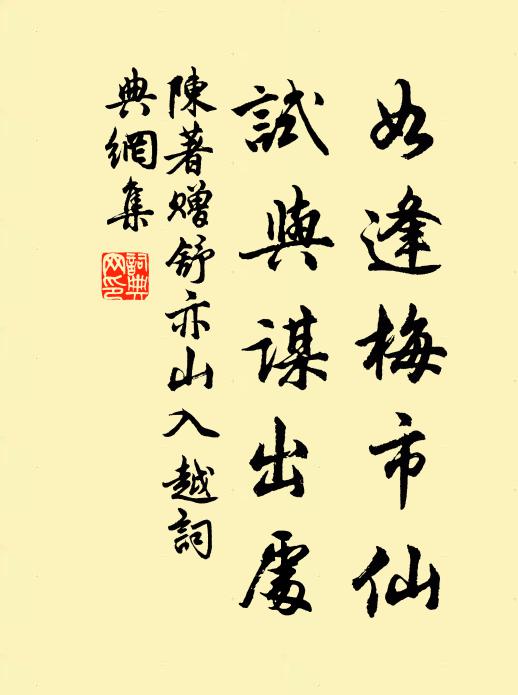 如逢梅市仙
試與謀出處
陳著贈舒亦山入越詞
典網集
詞典網印